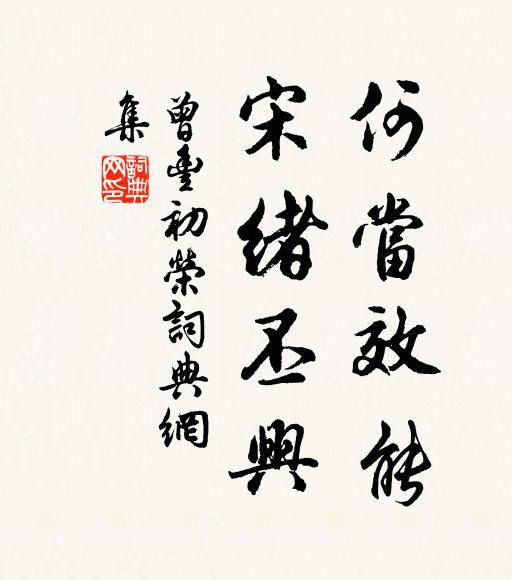 何當效能
宋緒丕興
曾豐初榮詞典網
集
詞典網印